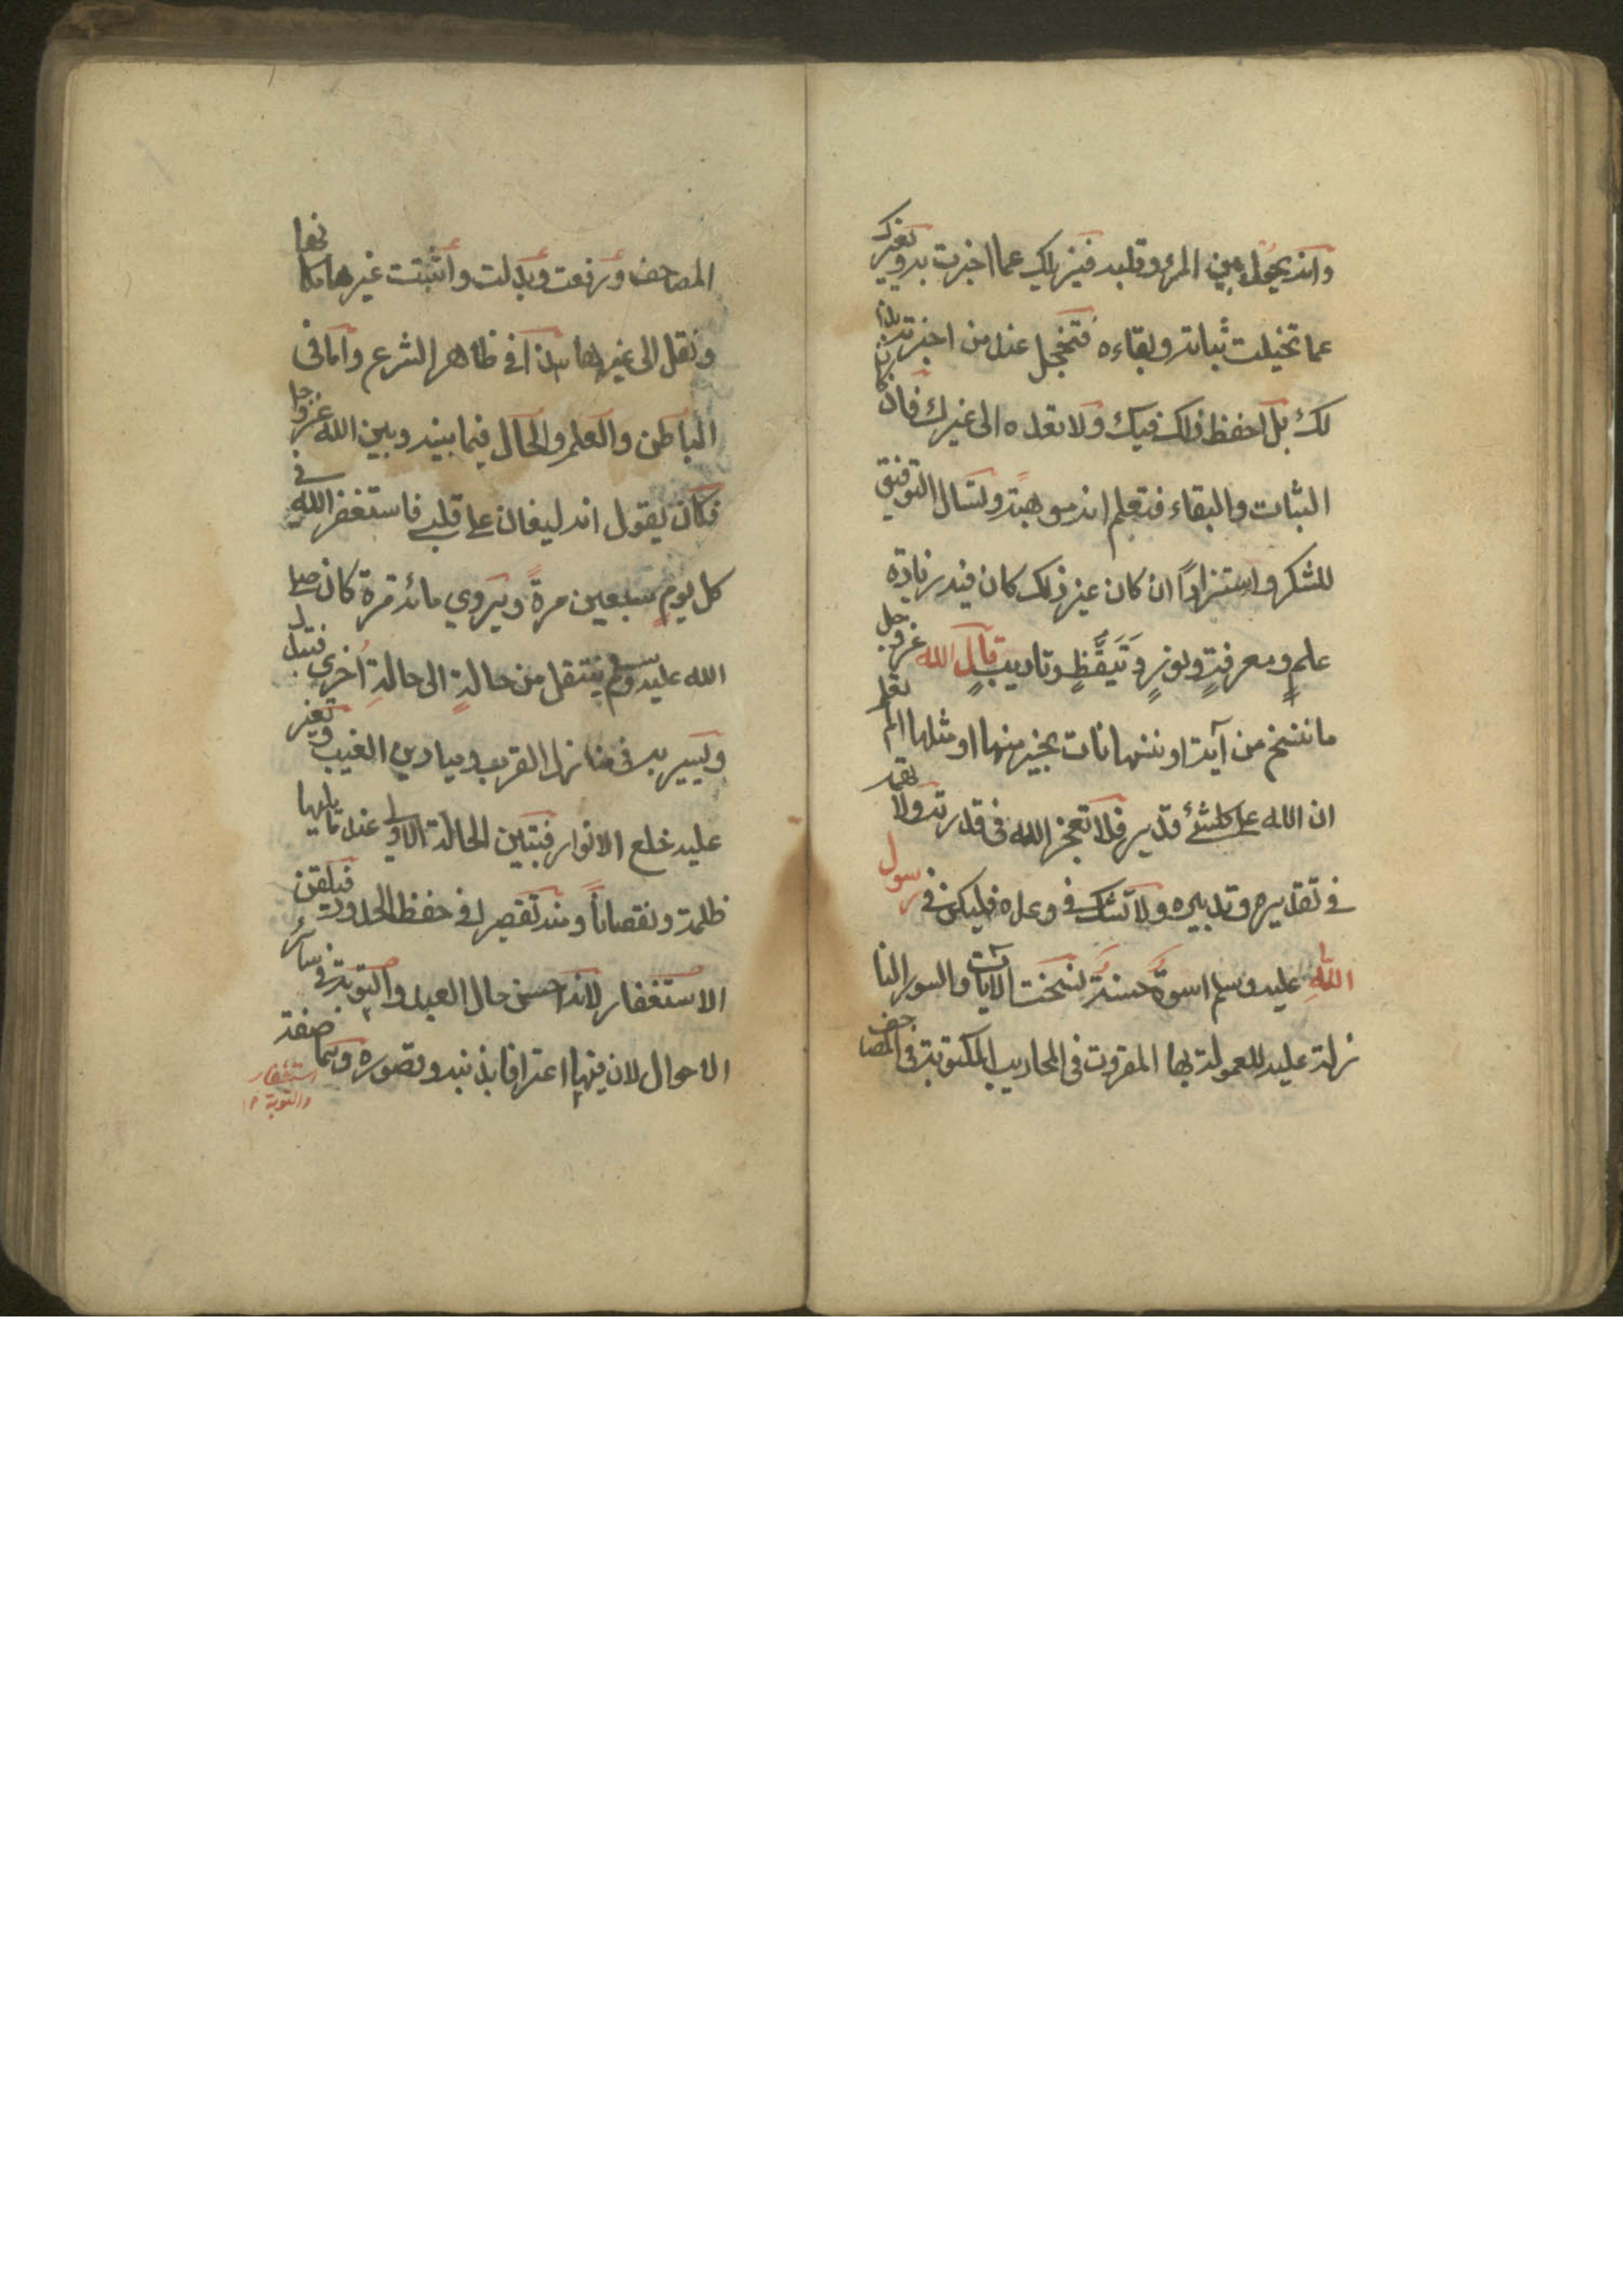 وانه يحول بين المرء وقلبه فيزيلك عما اخبرت به ويغيرك
عما تخيلت ثباته وبقاءه فتخجل عند من اخبرته بذا
لك بل احفظ ذلك فيك ولا تعده الى غيرك فان كان
الثبات والبقاء فتعلم انه موهبة ولتسال التوفيق
للشكر واستزادًا ان كان غير ذلك كان فيه زيادة
علمٍ ومعرفةٍ ونورٍ وَتَيَقُّظٍ وتاديبٍ قال الله عز وجل
ما ننسخ من آية او ننسها نات بخير منها او مثلها الم تعلم
ان الله على كلشئ قدير فلا تعجز الله فى قدرته ولا تتهمه
فى تقديره وتدبيره ولا تشك فى وعده فليكن فى رسول
الله عليه وسلم اسوة حسنة نسخت الآيات والسور النا
زلة عليه المعمولة بها المقروت فى المحاريب المكتوبة فى المصاحف
المصاحف ورفعت وبدلت واثبتت غيرها مكانها
ونقل الى غيرها هذا فى ظاهر الشرع واما فى
الباطن والعلم والحال فيما بينه وبين الله عز وجل
فكان يقول انه ليغان على قلبى فاستغفر الله فى
كل يومٍ سبعين مرةً ويروي مائة مرة كان صلى
الله عليه وسلم ينتقل من حالةٍ الى حالةٍ اُخرى فتبدل
ويسير به فى منازل القرب وميادين الغيب وتغير
عليه خلع الانوار فتبين الحالة الاولى عند تاليها
ظلمة ونقصاناً ومنه تقصير فى حفظ الحدود فيلقن
الاستغفار لانه احسن حال العبد والتوبة فى سائر
الاحوال لان فيها اعترافا بذنبه وقصوره وهما صفة
استغفار
والتوبة